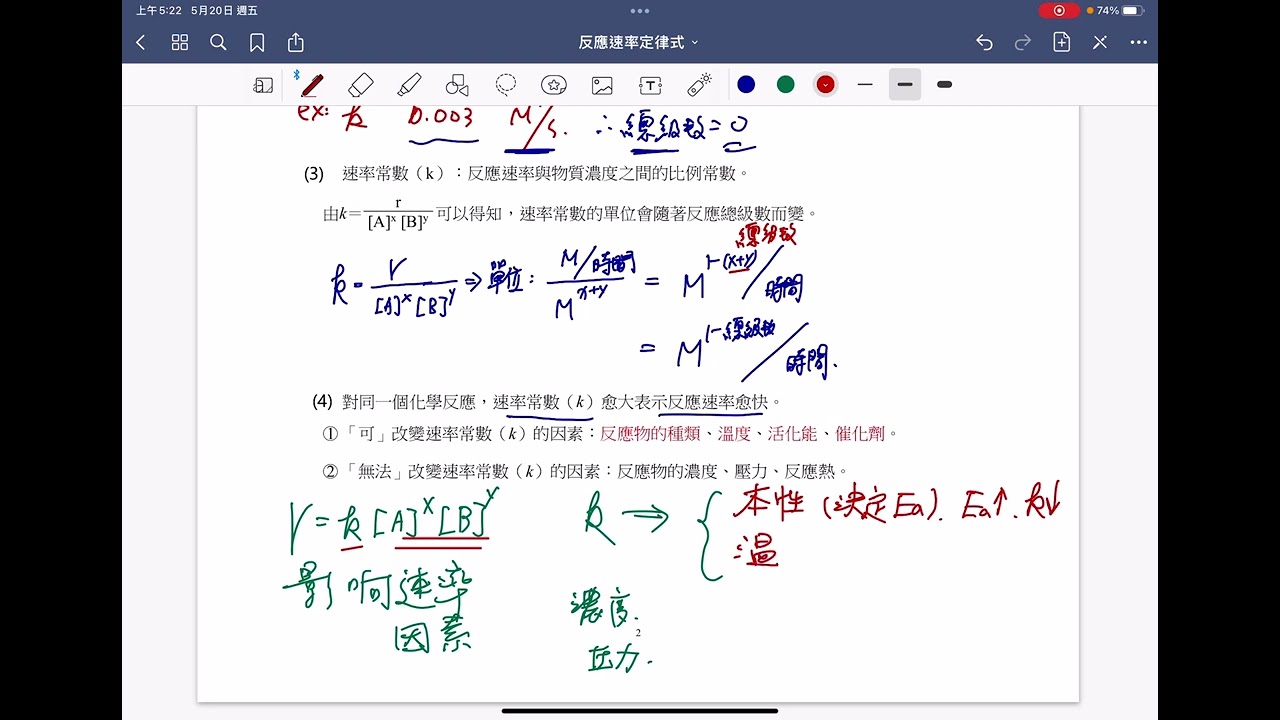 上午5:22 5月20日 週五
74%
反應速率定律式
ex: k 0.003 M/s. ∴總級數=0
(3) 速率常數（k）：反應速率與物質濃度之間的比例常數。
由k=r/[A]ˣ [B]ʸ 可以得知，速率常數的單位會隨著反應總級數而變。
總級數
k = r/[A]ˣ[B]ʸ ⇒ 單位: M/時間/Mˣ⁺ʸ = M¹⁻⁽ˣ⁺ʸ⁾/時間
= M^1-總級數/時間.
(4) 對同一個化學反應，速率常數（k）愈大表示反應速率愈快。
①「可」改變速率常數（k）的因素：反應物的種類、溫度、活化能、催化劑。
②「無法」改變速率常數（k）的因素：反應物的濃度、壓力、反應熱。
r = k [A]ˣ[B]ʸ
影响速率
因素
k → { 本性 (決定Ea). Ea↑. k↓
溫
濃度.
压力.
2